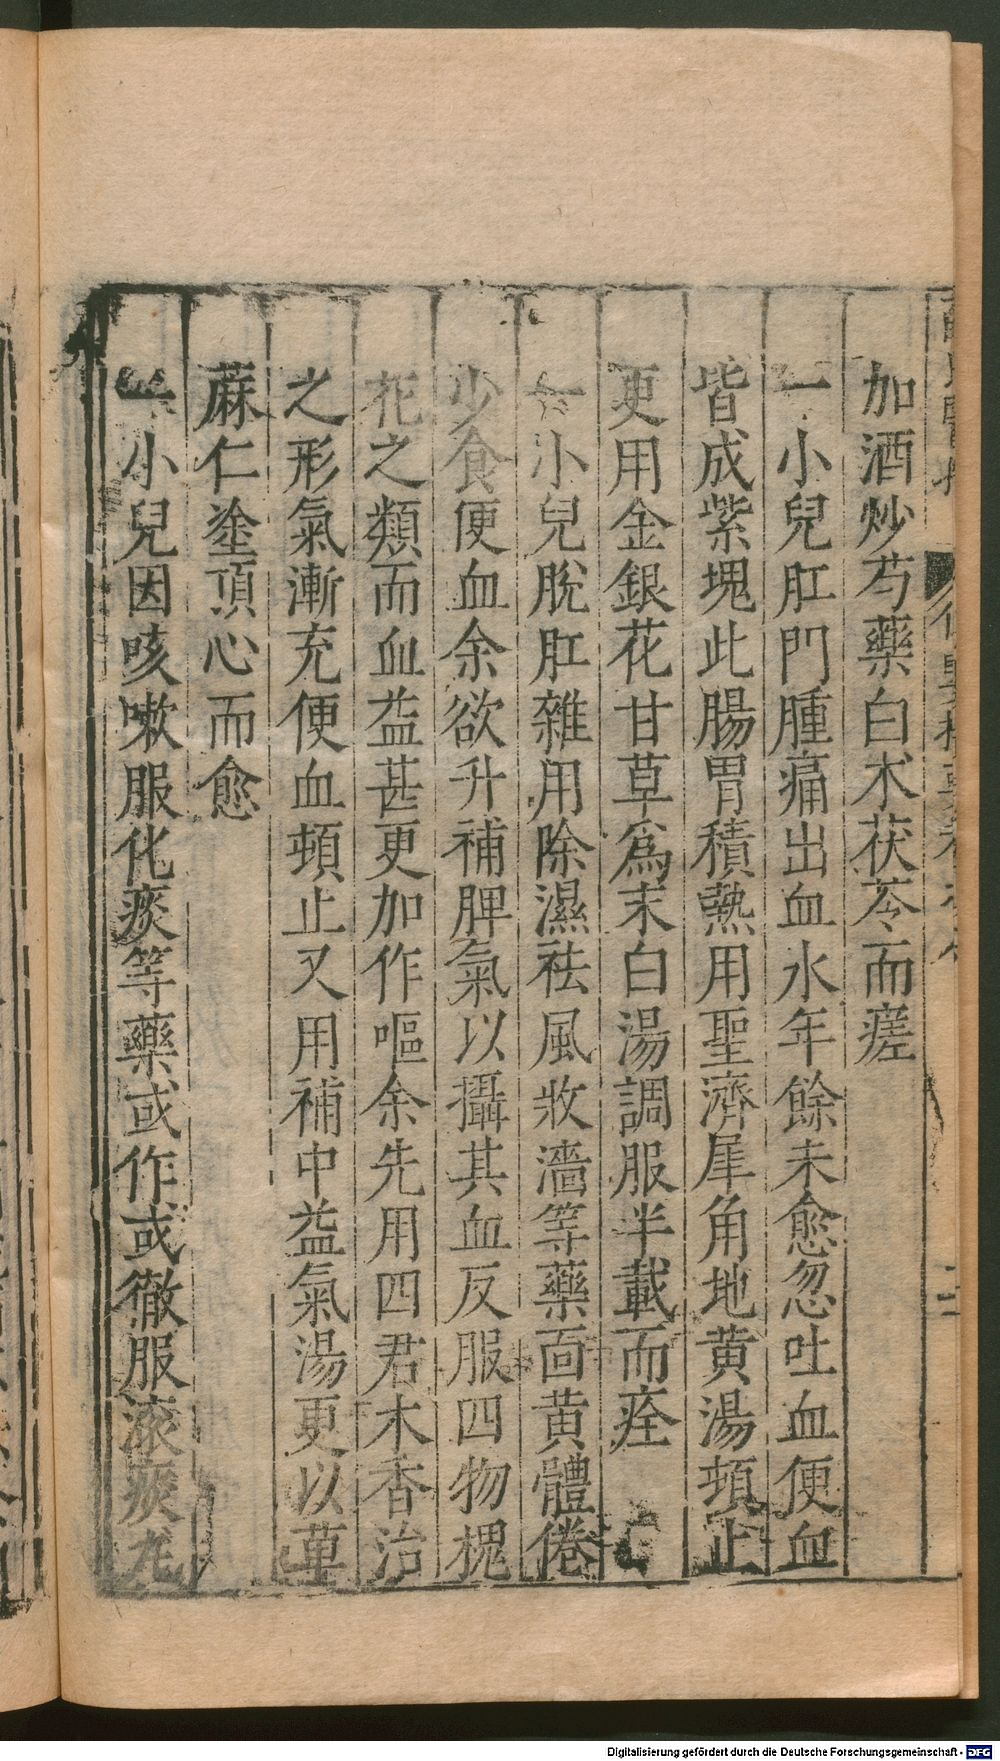 加酒炒芍藥白朮茯苓而瘥
一小兒肛門腫痛出血水年餘未愈忽吐血便血
皆成紫塊此腸胃積熱用聖濟犀角地黄湯頓止
更用金銀花甘草為末白湯調服半載而痊
一小兒脫肛雜用除濕祛風收濇等藥靣黄體倦
少食便血余欲升補脾氣以攝其血反服四物槐
花之類而血益甚更加作嘔余先用四君木香治
之形氣漸充便血頓止又用補中益氣湯更以萆
蔴仁塗頂心而愈
一小兒因咳嗽服化痰等藥或作或徹服滚痰丸
Digitalisierung gefördert durch die Deutsche Forschungsgemeinschaft - DFG